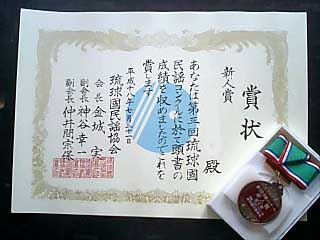 賞状
新人賞
殿
あなたは第三回琉球國
民謡コンクールに於て頭書の
成績を収めましたのでこれを
賞します
平成十八年七月三十一日
琉球國民謡協会
会長 金城 実
副会長 神谷幸一
副会長 仲井間宗保